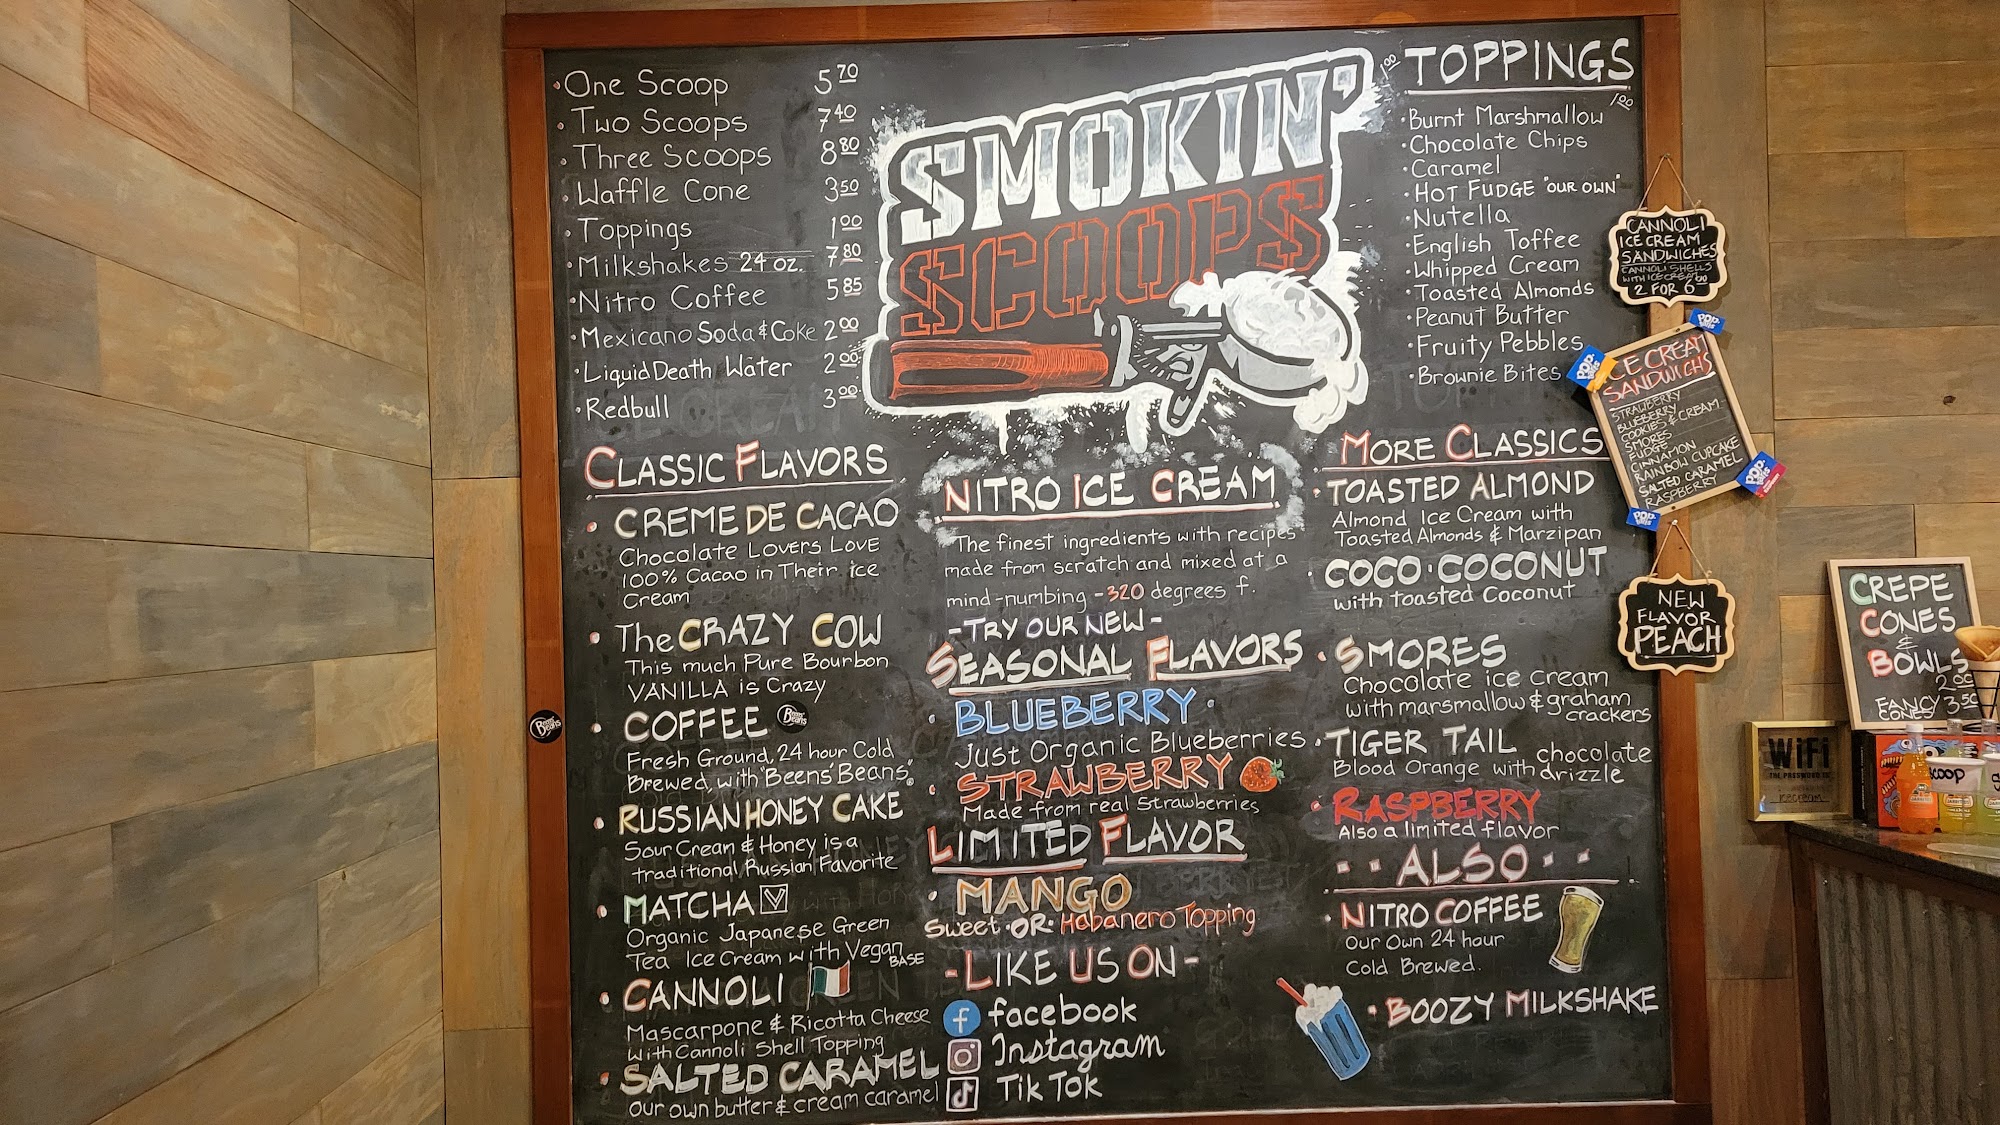 One Scoop 5 70
Two Scoops 7 40
Three Scoops 8 80
Waffle Cone 3 50
Toppings 1 00
Milkshakes 24 oz. 7 80
Nitro Coffee 5 85
Mexicano Soda & Coke 2 00
Liquid Death Water 2 00
Redbull 3 00
SMOKIN'
SCOOPS
1 00 TOPPINGS
1 00
Burnt Marshmallow
Chocolate Chips
Caramel
HOT FUDGE "OUR OWN"
Nutella
English Toffee
Whipped Cream
Toasted Almonds
Peanut Butter
Fruity Pebbles
Brownie Bites
CLASSIC FLAVORS
CREME DE CACAO
Chocolate Lovers Love
100% Cacao in Their ice
Cream
The CRAZY COW
This much Pure Bourbon
VANILLA is Crazy
COFFEE
Fresh Ground, 24 hour Cold
Brewed, with "Beens' Beans"
RUSSIAN HONEY CAKE
Sour Cream & Honey is a
traditional Russian Favorite
MATCHA V
Organic Japanese Green
Tea Ice Cream with Vegan
BASE
CANNOLI
Mascarpone & Ricotta Cheese
with Cannoli Shell Topping
SALTED CARAMEL
our own butter & cream caramel
NITRO ICE CREAM
The finest ingredients with recipes
made from scratch and mixed at a
mind-numbing -320 degrees f.
-TRY OUR NEW-
SEASONAL FLAVORS
BLUEBERRY
Just Organic Blueberries
STRAWBERRY
Made from real Strawberries
LIMITED FLAVOR
MANGO
Sweet OR Habanero Topping
-LIKE US ON-
facebook
Instagram
TikTok
MORE CLASSICS
TOASTED ALMOND
Almond Ice Cream with
Toasted Almonds & Marzipan
COCO·COCONUT
with toasted Coconut
SMORES
Chocolate ice cream
with marsmallow & graham
crackers
TIGER TAIL
Blood Orange with chocolate
drizzle
RASPBERRY
Also a limited flavor
ALSO
NITRO COFFEE
Our Own 24 hour
Cold Brewed.
BOOZY MILKSHAKE
CANNOLI
ICE CREAM
SANDWICHES
CANNOLI SHELLS
WITH ICE CREAM
2 FOR 6 00
ICE CREAM
SANDWICHS
STRAWBERRY
BLUEBERRY
COOKIES & CREAM
SMORES
FUDGE
CINNAMON
RAINBOW CUPCAKE
SALTED CARAMEL
RASPBERRY
NEW
FLAVOR
PEACH
CREPE
CONES
&
BOWLS
2 00
FANCY
CONES 3.50
WiFi
THE PASSWORD IS
icecream